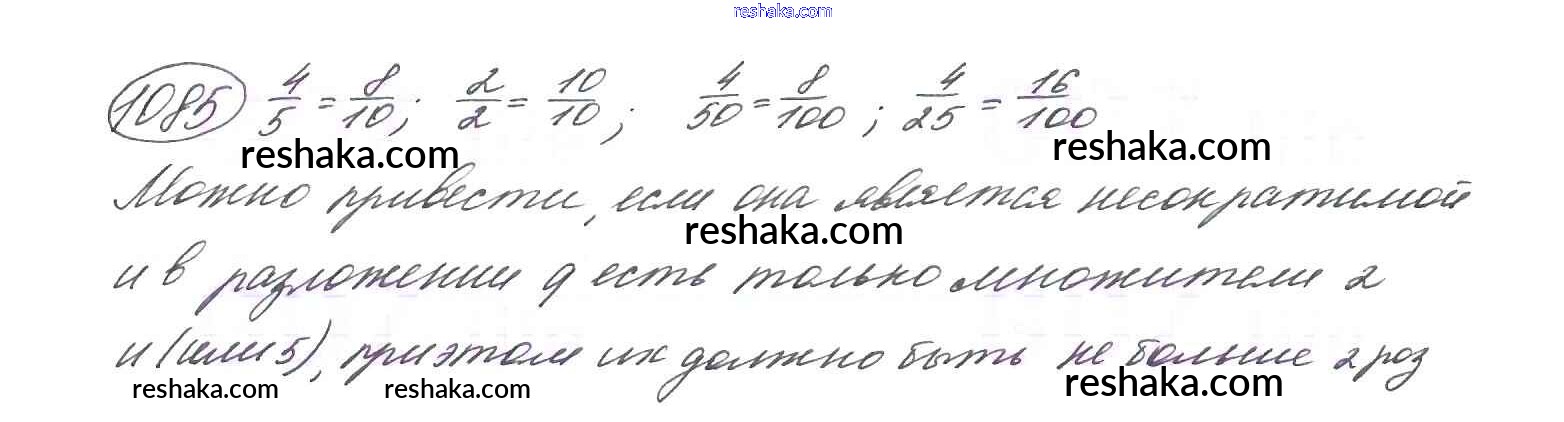 reshaka.com
1085 4/5 = 8/10; 2/2 = 10/10; 4/50 = 8/100; 4/25 = 16/100
reshaka.com reshaka.com
Можно привести, если она является несократимой
reshaka.com
и в разложении q есть только множители 2
и (или 5), при этом их должно быть не больше 2 раз
reshaka.com reshaka.com reshaka.com